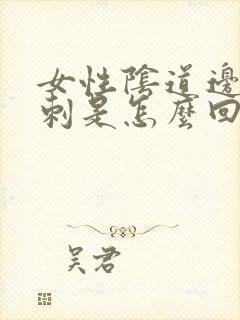 女性陰道邊
刺是怎麼回
吴君